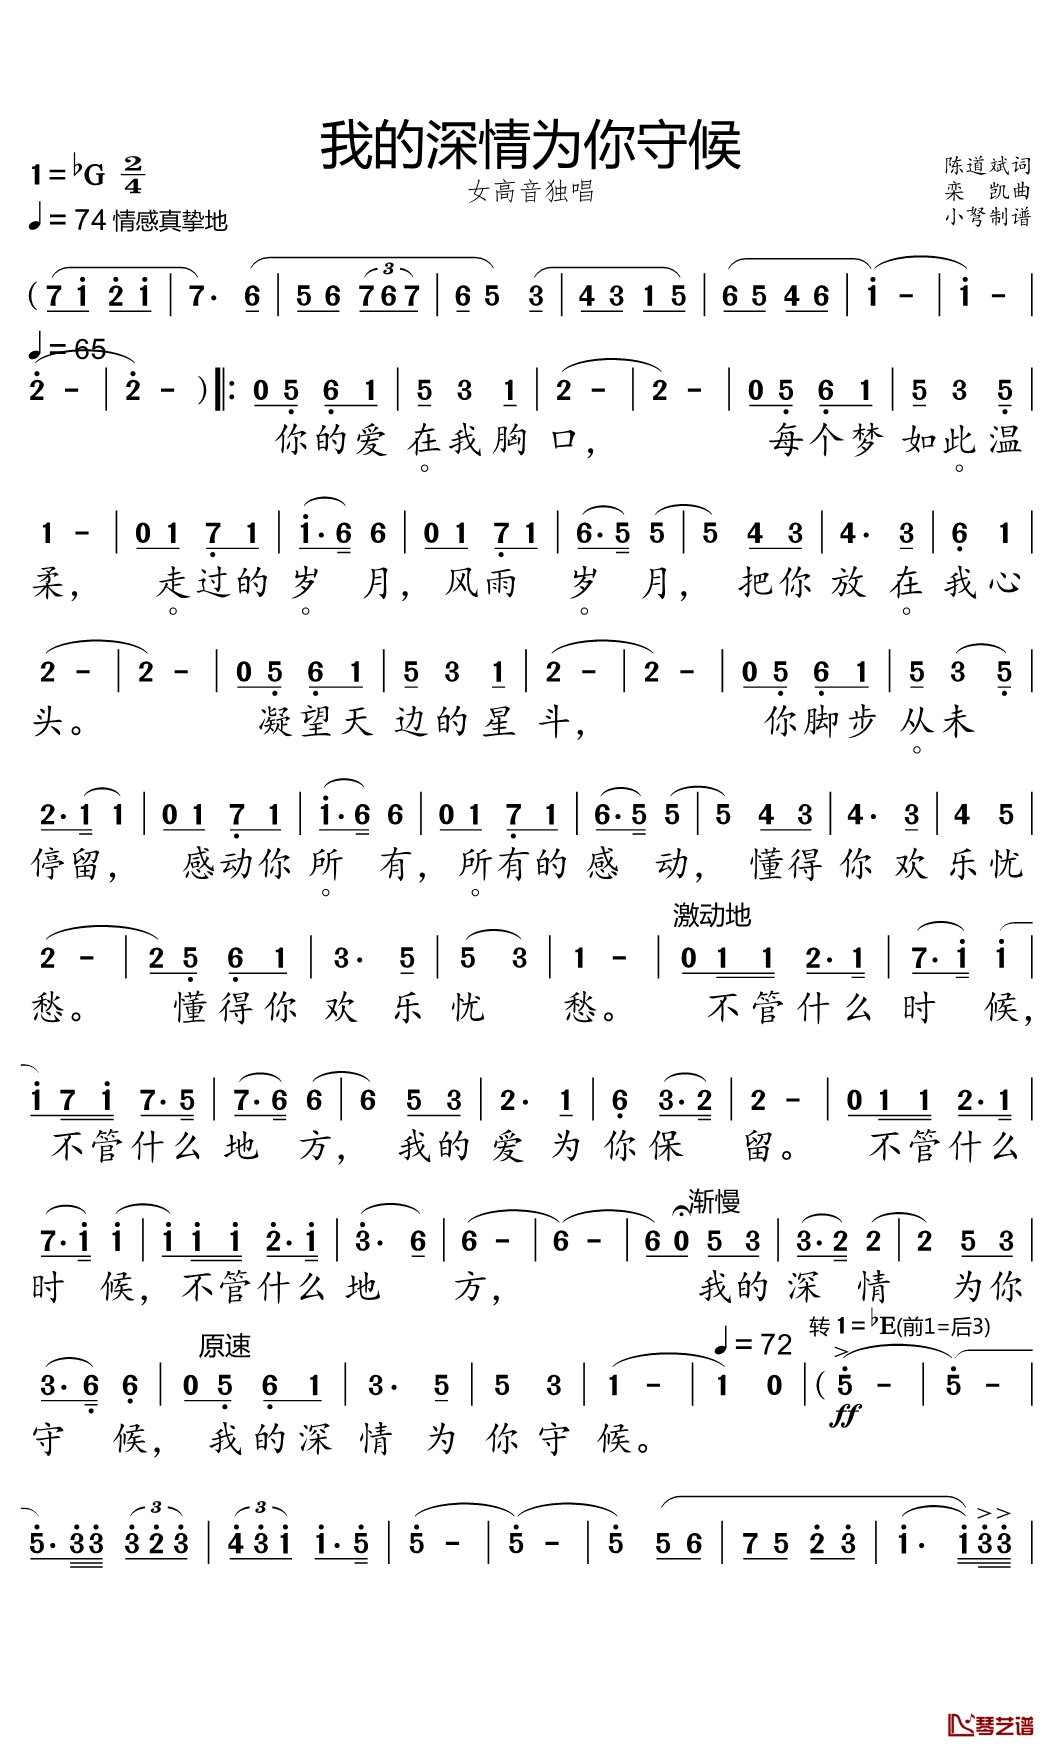 我的深情为你守候
1=♭G 2/4
陈道斌词
女高音独唱
栾 凯曲
♩=74 情感真挚地
小弩制谱
( 7 i 2 i | 7· 6 | 5 6 7 6 7 | 6 5 3 | 4 3 1 5 | 6 5 4 6 | i - | i - |
♩=65
2 - | 2 - ) ‖: 0 5 6 1 | 5 3 1 | 2 - | 2 - | 0 5 6 1 | 5 3 5 |
你的爱 在我胸 口, 每个梦 如此温
1 - | 0 1 7 1 | i· 6 6 | 0 1 7 1 | 6· 5 5 | 5 4 3 | 4· 3 | 6 1 |
柔, 走过的 岁 月, 风雨 岁 月, 把你 放 在 我心
2 - | 2 - | 0 5 6 1 | 5 3 1 | 2 - | 2 - | 0 5 6 1 | 5 3 5 |
头。 凝望天 边的星 斗, 你脚步 从未
2· 1 1 | 0 1 7 1 | i· 6 6 | 0 1 7 1 | 6· 5 5 | 5 4 3 | 4· 3 | 4 5 |
停留, 感动你 所 有, 所有的 感 动, 懂得你 欢 乐忧
激动地
2 - | 2 5 6 1 | 3· 5 | 5 3 | 1 - | 0 1 1 2· 1 | 7· i i |
愁。 懂得你 欢 乐 忧 愁。 不管什么 时 候,
i 7 i 7· 5 | 7· 6 6 | 6 5 3 | 2· 1 | 6 3· 2 | 2 - | 0 1 1 2· 1 |
不管什么 地 方, 我的 爱 为 你保 留。 不管什么
渐慢
7· i i | i i i 2· i | 3· 6 | 6 - | 6 - | 6 0 5 3 | 3· 2 2 | 2 5 3 |
时 候, 不管什么 地 方, 我的 深 情 为你
原速 ♩=72 转 1=♭E(前1=后3)
3· 6 6 | 0 5 6 1 | 3· 5 | 5 3 | 1 - | 1 0 | ( 5 - | 5 - |
ff
守 候, 我的深 情 为 你守 候。
5· 3 3 3 2 3 | 4 3 i i· 5 | 5 - | 5 - | 5 5 6 | 7 5 2 3 | i· i 3 3 |
琴艺谱